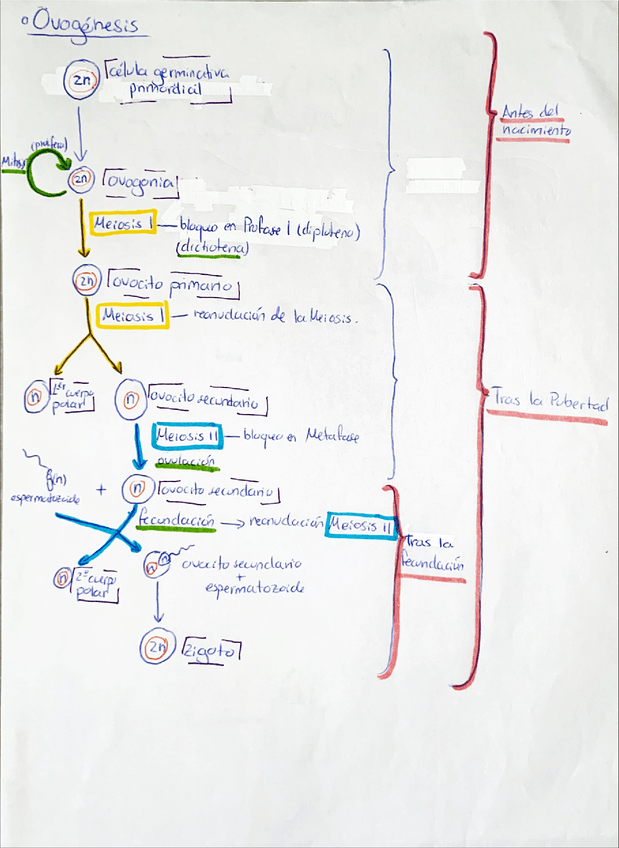 Ovogénesis
2n
célula germinativa
primordial
Antes del
nacimiento
(prolifera)
Mitosis
2n
ovogonia
Meiosis I — bloqueo en Profase I (diploteno)
(dictiotena)
2n
ovocito primario
Meiosis I — reanudación de la Meiosis.
n
1er cuerpo
polar
n
ovocito secundario
Tras la Pubertad
Meiosis II — bloqueo en Metafase
ovulación
(n)
espermatozoide
+
n
ovocito secundario
fecundación → reanudación Meiosis II
Tras la
fecundación
n
2º cuerpo
polar
n
n
ovocito secundario
+
espermatozoide
2n
zigoto